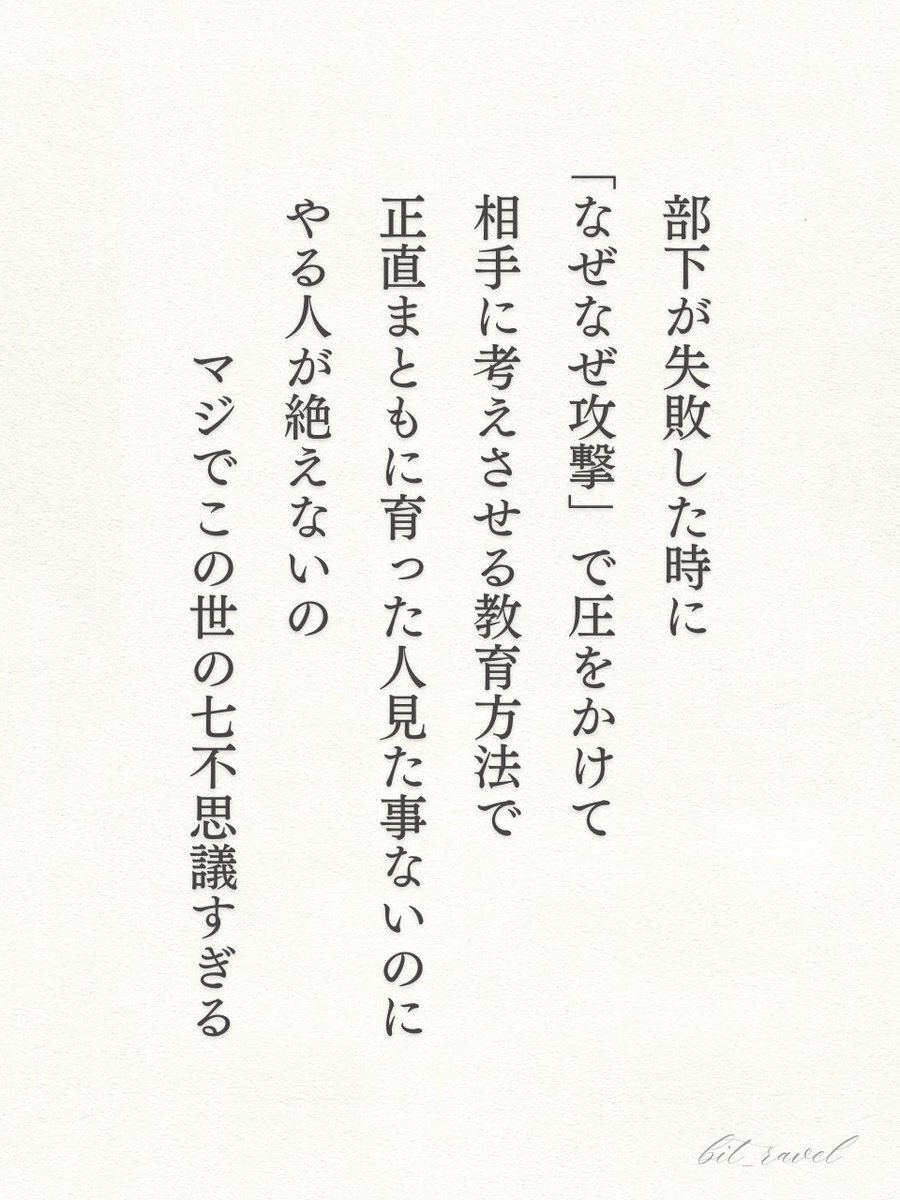 部下が失敗した時に
「なぜなぜ攻撃」で圧をかけて
相手に考えさせる教育方法で
正直まともに育った人見た事ないのに
やる人が絶えないの
マジでこの世の七不思議すぎる
bit_ravel